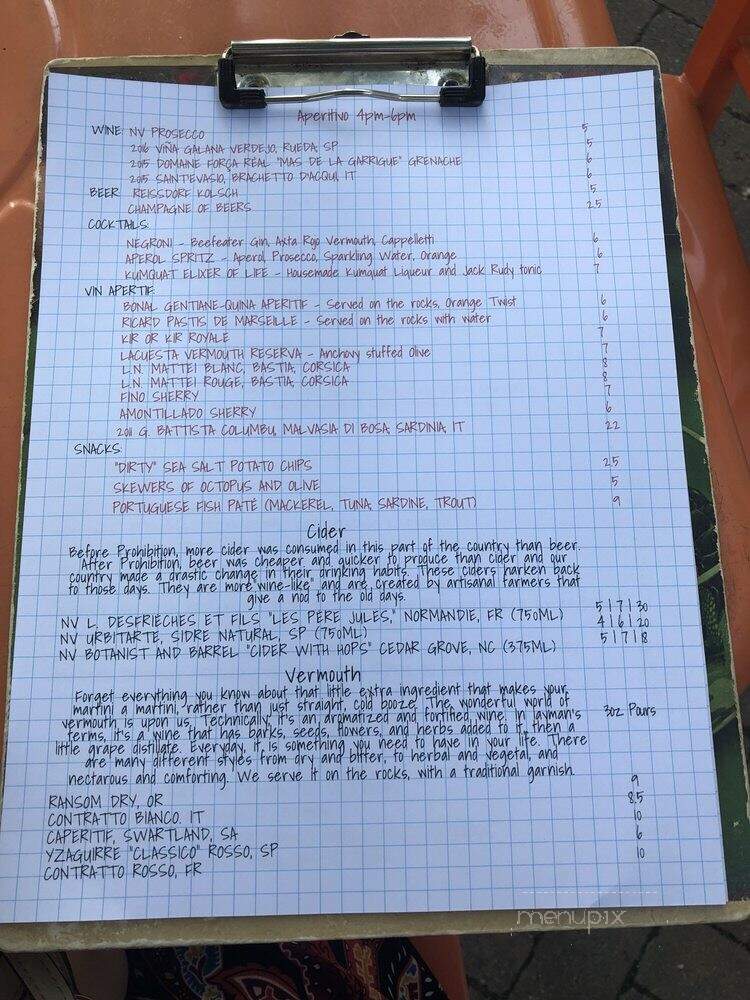 Aperitivo 4pm-6pm
WINE: NV PROSECCO 5
2016 VIÑA GALANA VERDEJO, RUEDA, SP 5
2015 DOMAINE FORÇA RÉAL "MAS DE LA GARRIGUE" GRENACHE 6
2015 SAINTEVASIO, BRACHETTO D'ACQUI, IT 6
BEER: REISSDORF KOLSCH 5
CHAMPAGNE OF BEERS 2.5
COCKTAILS:
NEGRONI - Beefeater Gin, Axta Rojo Vermouth, Cappelletti 6
APEROL SPRITZ - Aperol, Prosecco, Sparkling Water, Orange 6
KUMQUAT ELIXER OF LIFE - Housemade Kumquat Liqueur and Jack Rudy tonic 7
VIN APERTIF:
BONAL GENTIANE-QUINA APERITIF - Served on the rocks, Orange Twist 6
RICARD PASTIS DE MARSEILLE - Served on the rocks with water 6
KIR OR KIR ROYALE 7
LACUESTA VERMOUTH RESERVA - Anchovy stuffed Olive 7
L.N. MATTEI BLANC, BASTIA, CORSICA 8
L.N. MATTEI ROUGE, BASTIA, CORSICA 8
FINO SHERRY 7
AMONTILLADO SHERRY 6
2011 G. BATTISTA COLUMBU, MALVASIA DI BOSA, SARDINIA, IT 22
SNACKS:
"DIRTY" SEA SALT POTATO CHIPS 2.5
SKEWERS OF OCTOPUS AND OLIVE 5
PORTUGUESE FISH PATÉ (MACKEREL, TUNA, SARDINE, TROUT) 9
Cider
Before Prohibition, more cider was consumed in this part of the country than beer.
After Prohibition, beer was cheaper and quicker to produce than cider and our
country made a drastic change in their drinking habits. These ciders harken back
to those days. They are more wine-like and are created by artisanal farmers that
give a nod to the old days.
NV L. DESFRIÈCHES ET FILS "LES PERE JULES," NORMANDIE, FR (750ML) 5 | 7 | 30
NV URBITARTE, SIDRE NATURAL, SP (750ML) 4 | 6 | 20
NV BOTANIST AND BARREL "CIDER WITH HOPS" CEDAR GROVE, NC (375ML) 5 | 7 | 8
Vermouth
Forget everything you know about that little extra ingredient that makes your
martini a martini, rather than just straight, cold booze. The wonderful world of
vermouth is upon us. Technically, it's an aromatized and fortified wine. In layman's 3oz Pours
terms, it's a wine that has barks, seeds, flowers, and herbs added to it, then a
little grape distillate. Everyday, it is something you need to have in your life. There
are many different styles from dry and bitter, to herbal and vegetal, and
nectarous and comforting. We serve it on the rocks, with a traditional garnish.
RANSOM DRY, OR 9
CONTRATTO BIANCO. IT 8.5
CAPERITIF, SWARTLAND, SA 10
YZAGUIRRE "CLASSICO" ROSSO, SP 6
CONTRATTO ROSSO, FR 10
menupix